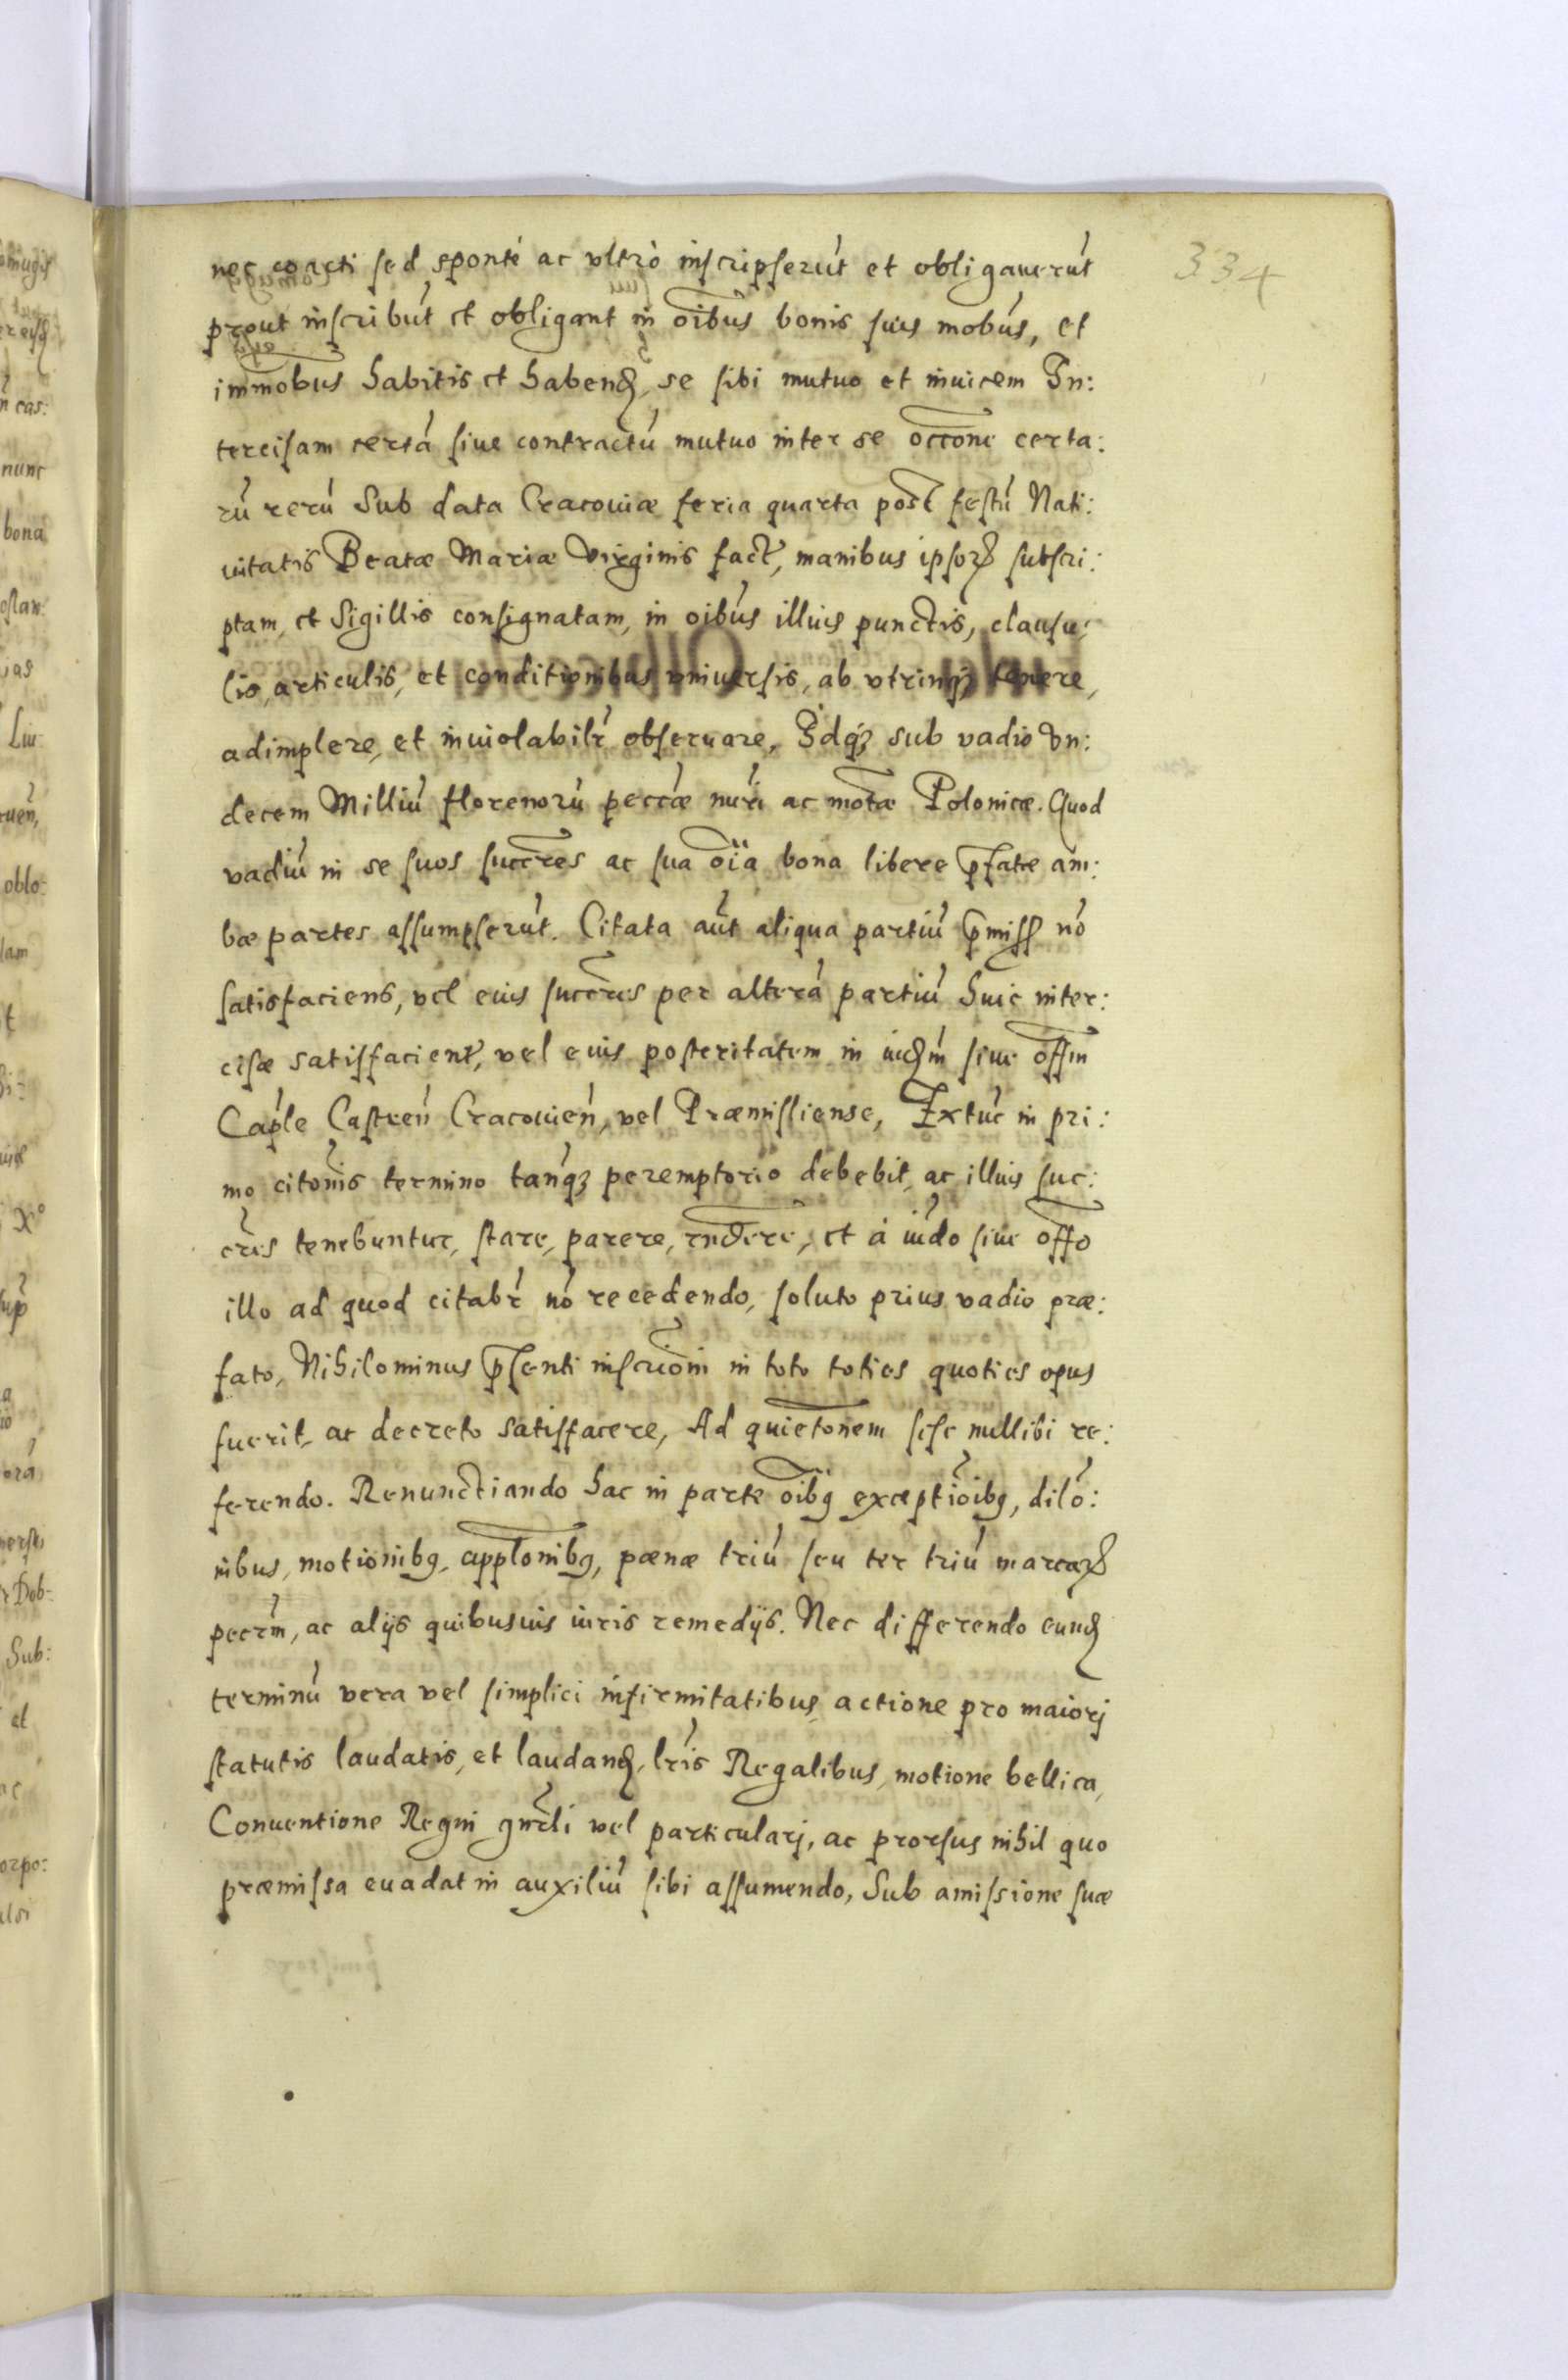 334
nec coacti sed sponté ac vltrò inscripserūt et obligauerūt
prout inscribūt et obligant in oībus bonis suis mobūs, et
immobus habitis et habend, se sibi mutuo et inuicem In:
tercisam certā siue contractū mutuo inter se occōne certa:
rū rerū Sub data Cracouiæ feria quarta post festū Nati:
uitatis Beatæ Mariæ Virginis fact, manibus ipsor subscri:
ptam, et Sigillis consignatam, in oibūs illius punctis, clausu:
lis, articulis, et conditionibus vniuersis, ab vtrinq₃ tenere,
adimplere, et inuiolabilr̄ obseruare, Idq₃ sub vadio Vn:
decem Milliū florenorū peccæ nūri ac motæ Polonicæ. Quod
vadiū in se suos succr̄es ac sua oīa bona libere p̄fatæ am:
bæ partes assumpserūt. Citata aūt aliqua partiū p̄miss nō
satisfaciens, vel eius succr̄es per alterā partiū huic inter:
cisæ satisfacient, vel eius posteritatem in iudm̄ siue offm̄
Cap̄le Castreń Cracouień, vel Præmisliense, Extūc in pri:
mo citōnis termino tanq₃ peremptorio debebit, ac illius suc:
cr̄es tenebuntur, stare, parere, rndere, et à iud̄o siue off̄o
illo ad quod citabr̄ nō recedendo, soluto prius vadio præ:
fato, Nihilominus p̄senti inscriōni in toto toties quoties opus
fuerit, ac decreto satisfacere, Ad quietōnem sese nullibi re:
ferendo. Renunctiando hac in parte oībq exceptiōibq, dilō:
nibus, motionibq, applōnibq, pœnæ triū seu ter triū marcar
pecr̄m, ac alijs quibusuis iuris remedijs. Nec differendo eund
terminū vera vel simplici infirmitatibus, actione pro maiorj
statutis laudatis, et laudand, lr̄is Regalibus, motione bellica,
Conuentione Regni gnr̄li vel particularj, ac prorsus nihil quo
præmissa euadat in auxiliū sibi assumendo, Sub amissione suæ